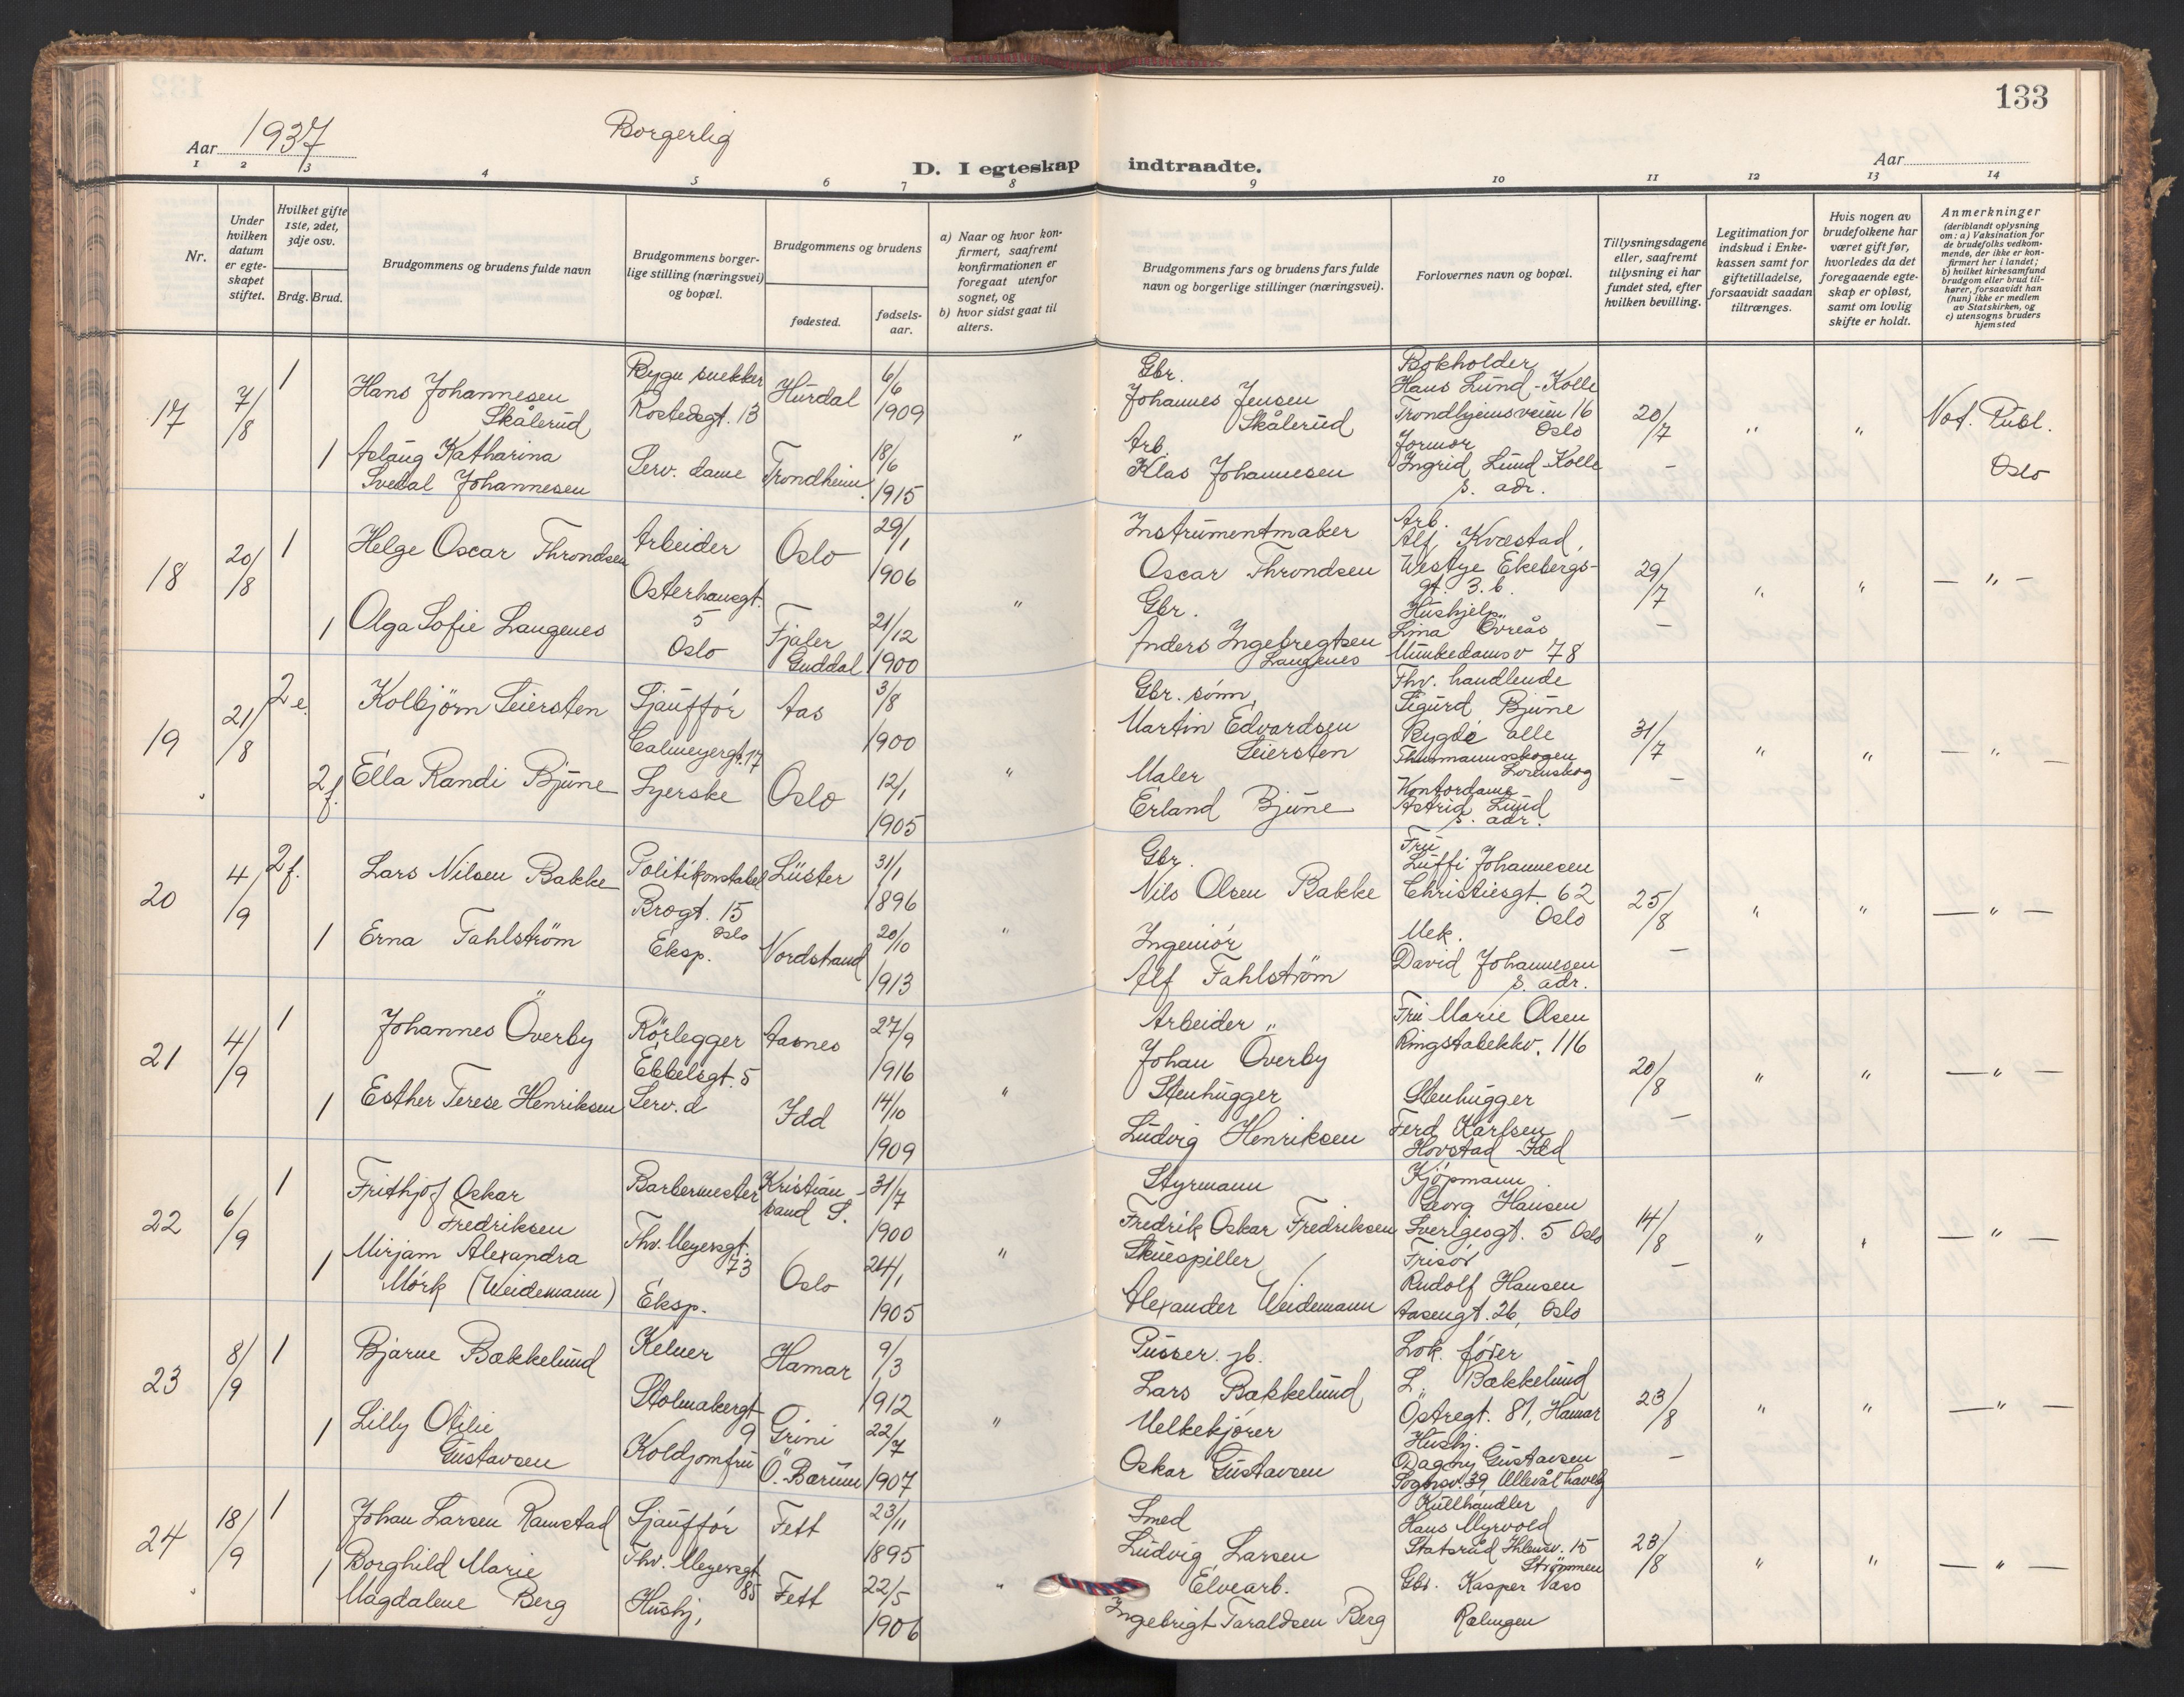 133
Aar 1937
Borgerlig
D. I egteskap indtraadte.
Aar
1 2 3 4 5 6 7 8 9 10 11 12 13 14
Nr.
Under hvilken datum er egteskapet stiftet.
Hvilket gifte 1ste, 2det, 3dje osv.
Brdg. Brud.
Brudgommens og brudens fulde navn
Brudgommens borgerlige stilling (næringsvei) og bopæl.
Brudgommens og brudens
fødested.
fødselsaar.
a) Naar og hvor konfirmert, saafremt konfirmationen er foregaat utenfor sognet, og
b) hvor sidst gaat til alters.
Brudgommens fars og brudens fars fulde navn og borgerlige stillinger (næringsvei).
Forlovernes navn og bopæl.
Tillysningsdagene eller, saafremt tillysning ei har fundet sted, efter hvilken bevilling.
Legitimation for indskud i Enkekassen samt for giftetilladelse, forsaavidt saadan tiltrænges.
Hvis nogen av brudefolkene har været gift før, hvorledes da det foregaaende egteskap er opløst, samt om lovlig skifte er holdt.
Anmerkninger
(deriblandt oplysning om: a) Vaksination for de brudefolks vedkommende, der ikke er konfirmert her i landet; b) hvilket kirkesamfund brudgom eller brud tilhører, forsaavidt han (hun) ikke er medlem av Statskirken, og c) utensogns bruders hjemsted
17
7/8
1
Hans Johannesen
Skålerud
Bygn snekker
Rostedsgt. 13
Hurdal
6/6
1909
1
Aslaug Katharina
Svedal Johannesen
Serv. dame
Trondheim
18/6
1915
"
Gbr.
Johannes Jensen
Skålerud
Arb.
Klas Johannesen
Bokholder
Hans Lund-Kolle
Trondhjemsveien 16
Oslo
Jormor
Ingrid Lund-Kolle
s. adr.
20/7
-
" "
Not. Publ.
Oslo
18
20/8
1
Helge Oscar Throndsen
Arbeider
Osterhausgt.
5
Oslo
Oslo
29/1
1906
1
Olga Sofie Langenes
Fjaler
Guddal
21/12
1900
"
Instrumentmaker
Oscar Throndsen
Gbr.
Anders Ingebregtsen
Langenes
Arb.
Alf Kvæstad,
Westye Ekebergs-
gt. 3. b.
Hushjelp.
Lina Övreås
Munkedamsv 78
29/7
-
" " — " —
19
21/8
2 e.
Kolbjörn Seiersten
Sjaufför
Calmeyergt. 17
Aas
3/8
1900
2 f.
Ella Randi Bjune
Syerske
Oslo
12/1
1905
"
Gbr. sönn,
Martin Edvardsen
Seiersten
Maler
Erland Bjune
Fhv. handlende
Sigurd Bjune
Bygdö alle
Thurmannskogen
Lörenskog
Kontordame
Astrid Lund
s. adr.
31/7
-
" " — " —
20
4/9
2 f.
Lars Nilsen Bakke
Politikonstabel
Brogt. 15
Oslo
Luster
31/1
1896
1
Erna Fahlström
Eksp.
Nordstrand
20/10
1913
"
Gbr.
Nils Olsen Bakke
Ingeniör
Alf Fahlström
Fru
Luffi Johannesen
Christiesgt. 62
Oslo
Mek.
David Johannesen
s. adr.
25/8
—
" " — " —
21
4/9
1
Johannes Överby
Rörlegger
Ebbelsgt. 5
Aasnes
27/9
1916
1
Esther Terese Henriksen
Serv. d
Idd
14/10
1909
"
Arbeider
Johan Överby
Stenhugger
Ludvig Henriksen
Fru Marie Olsen
Ringstabekkv. 116
Stenhugger
Ferd Karlsen
Hovstad Idd
20/8
—
" " — " —
22
6/9
1
Frithjof Oskar
Fredriksen
Barbermester
Thv. Meyersgt.
73
Kristian-
sand S.
31/7
1900
1
Mirjam Alexandra
Mörk (Weidemann)
Eksp.
Oslo
24/1
1905
"
Styrmann
Fredrik Oskar Fredriksen
Skuespiller
Alexander Weidemann
Kjöpmann
Georg Hansen
Sverigesgt. 5 Oslo
Frisör
Rudolf Hansen
Aasengt. 26, Oslo
14/8
—
" " — " —
23
8/9
1
Bjarne Bækkelund
Kelner
Stolmakergt
9
Hamar
9/3
1912
1
Lilly Otilie
Gustavsen
Koldjomfru
Grini
Ö. Bærum
22/7
1907
"
Pusser. jb.
Lars Bækkelund
Melkekjörer
Oskar Gustavsen
Lok. förer
L. Bækkelund
Östregt. 81, Hamar
Hushj.
Dagny Gustavsen
Sognsv. 39, Ullevål haveby
23/8
—
" " — " —
24
18/9
1
Johan Larsen Ramstad
Sjaufför
Thv. Meyersgt
85
Fett
23/11
1895
1
Borghild Marie
Magdalene Berg
Hushj,
Fett
22/5
1906
"
Smed
Ludvig Larsen
Elvearb.
Ingebrigt Taraldsen Berg
Kullhandler
Hans Myrvold
Statsråd Ihlensv. 15
Strömmen
Gbr. Kasper Næss
Rælingen
23/8
" " — " —